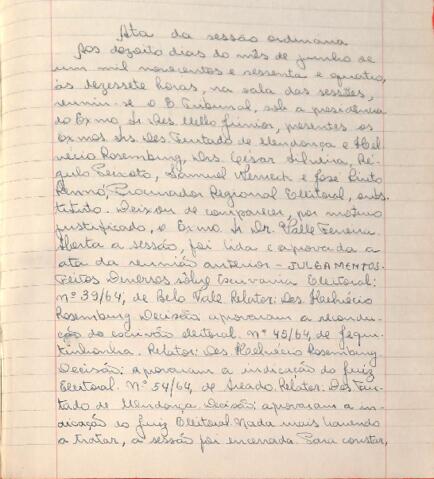 Ata da sessão ordinária
Aos dezoito dias do mês de junho de
um mil novecentos e sessenta e quatro,
às dezessete horas, na sala das sessões,
reuniu-se o E Tribunal, sob a presidência
do Exmo Sr Des Mello Júnior, presentes os
Exmos. Srs. Des. Furtado de Mendonça e Hel-
vécio Rosemburg, Drs. César Silveira, Ré-
gulo Peixoto, Samuel Werneck e José Pinto
Renno, Procurador Regional Eleitoral, subs-
tituto. Deixou de comparecer, por motivo
justificado, o Exmo Sr Dr. Valle Ferreira.
Aberta a sessão, foi lida e aprovada a
ata da reunião anterior - JULGAMENTOS -
Feitos Diversos sôbre Escrivania Eleitoral:
Nº 39/64, de Belo Vale Relator: Des Helvécio
Rosemburg Decisão aprovaram a recondu-
ção do escrivão eleitoral. Nº 45/64, de Jequi-
tinhonha. Relator: Des Helvécio Rosemburg.
Decisão: aprovaram a indicação do Juiz
Eleitoral. Nº 54/64, de Relator: Des Fur-
tado de Mendonça. Decisão: aprovaram a in-
dicação do Juiz Eleitoral. Nada mais havendo
a tratar, a sessão foi encerrada. Para constar,